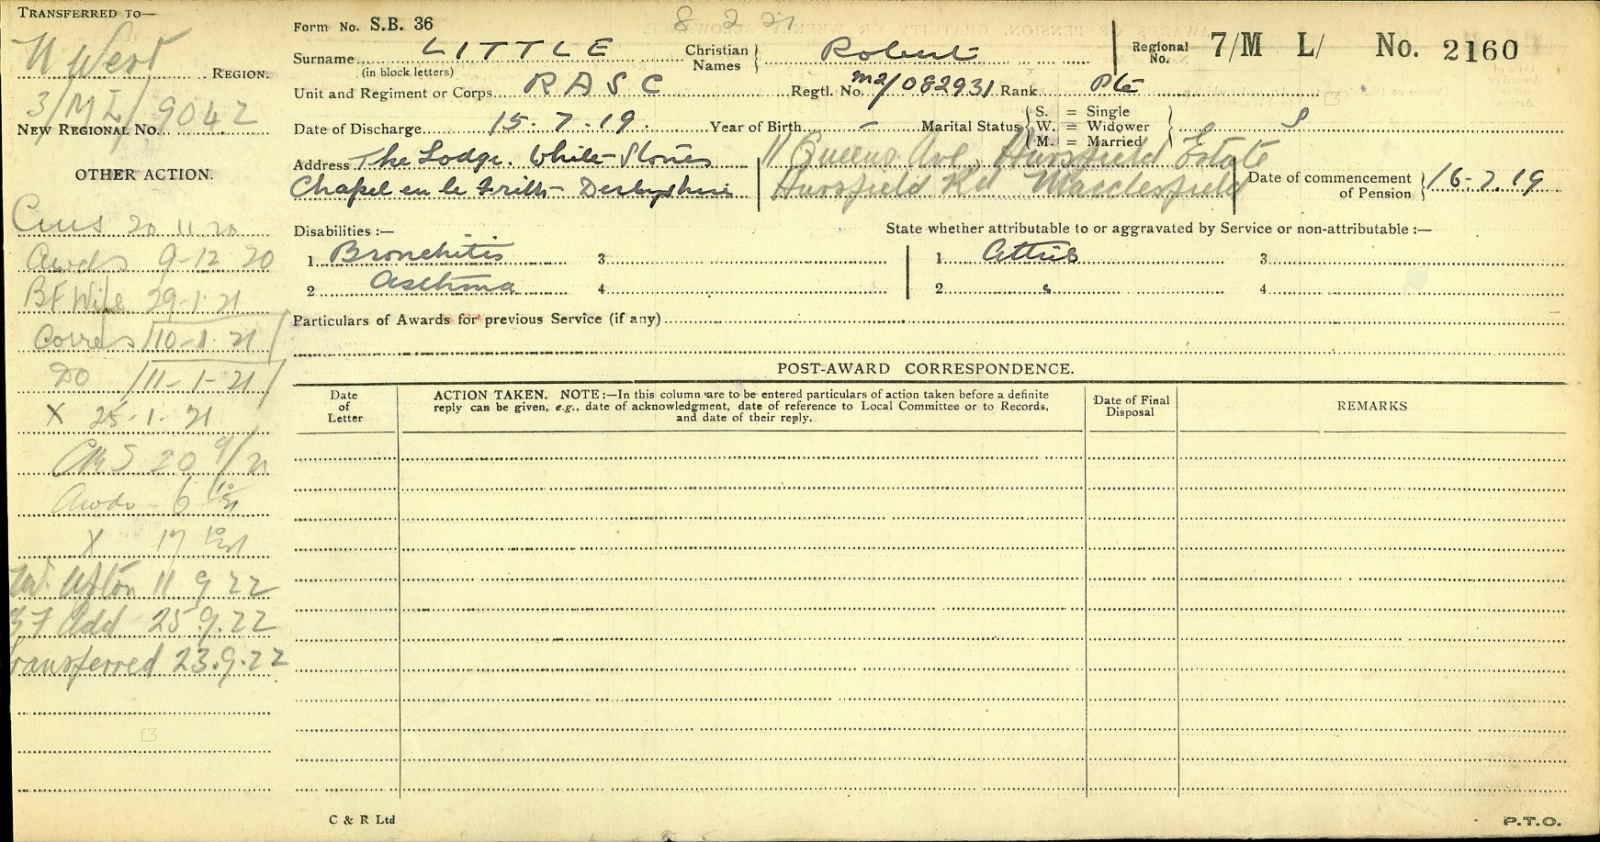 TRANSFERRED TO—
N West REGION.
3/ML/9042
NEW REGIONAL No.
OTHER ACTION.
20 11 20
Awds 9-12 20
BF 29-1-21
Corres 10-1-21
Do 11-1-21
X 25-1-21
CMS 20 9/21
Awds 6
X 17
11 9 22
BF Add 25.9.22
Transferred 23.9.22
8 2 21
Form No. S.B. 36
Surname LITTLE Christian Names Robert Regional No. 7/M L/ No. 2160
(in block letters)
Unit and Regiment or Corps R A S C Regtl. No. M2/082931 Rank Pte
Date of Discharge 15.7.19. Year of Birth - Marital Status { S. = Single W. = Widower M. = Married } S
Address The Lodge. White Stones 11 Queens Ave, Hursfield Estate
Chapel en le Frith Derbyshire Hursfield Rd Macclesfield Date of commencement of Pension } 16-7-19
Disabilities :— State whether attributable to or aggravated by Service or non-attributable :—
1 Bronchitis 3 1 Attrib 3
2 Asthma 4 2 " 4
Particulars of Awards for previous Service (if any)
POST-AWARD CORRESPONDENCE.
Date of Letter
ACTION TAKEN. NOTE :—In this column are to be entered particulars of action taken before a definite
reply can be given, e.g., date of acknowledgment, date of reference to Local Committee or to Records,
and date of their reply.
Date of Final Disposal
REMARKS
C & R Ltd
P.T.O.